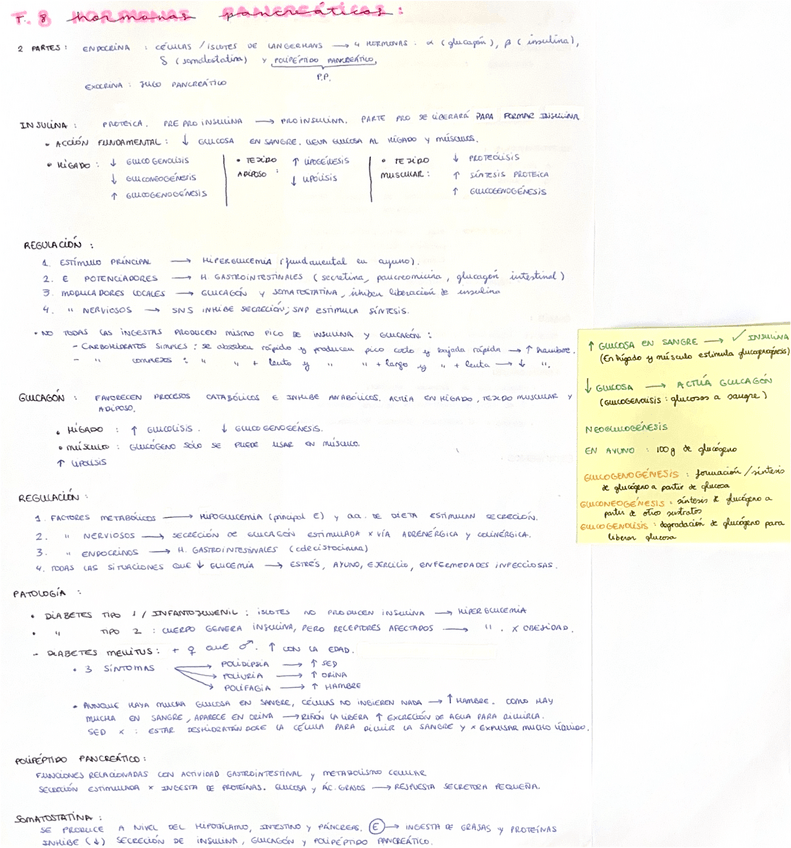 T. 8 HORMONAS PANCREÁTICAS:
2 PARTES: ENDOCRINA: CÉLULAS / ISLOTES DE LANGERHANS → 4 HORMONAS: α (glucagón), β (insulina),
δ (somatostatina) y POLIPÉPTIDO PANCREÁTICO,
P.P.
EXOCRINA: JUGO PANCREÁTICO
INSULINA: PROTEICA. PRE PRO INSULINA → PROINSULINA. PARTE PRO SE LIBERARÁ PARA FORMAR INSULINA
• ACCIÓN FUNDAMENTAL: ↓ GLUCOSA EN SANGRE. LLEVA GLUCOSA AL HÍGADO Y MÚSCULOS.
• HÍGADO: ↓ GLUCOGENOLISIS
↓ GLUCONEOGÉNESIS
↑ GLUCOGENOGÉNESIS
• TEJIDO ADIPOSO: ↑ LIPOGÉNESIS
↓ LIPOLISIS
• TEJIDO MUSCULAR: ↓ PROTEOLISIS
↑ SÍNTESIS PROTEICA
↑ GLUCOGENOGÉNESIS
REGULACIÓN:
1. ESTÍMULO PRINCIPAL → HIPERGLUCEMIA (fundamental en ayuno).
2. E POTENCIADORES → H. GASTROINTESTINALES (secretina, pancreomicina, glucagón intestinal)
3. MODULADORES LOCALES → GLUCAGÓN Y SOMATOSTATINA, inhiben liberación de insulina
4. " NERVIOSOS → SNS INHIBE SECRECIÓN, SNP ESTIMULA SÍNTESIS.
• NO TODAS LAS INGESTAS PRODUCEN MISMO PICO DE INSULINA Y GLUCAGÓN:
- CARBOHIDRATOS SIMPLES: se absorben rápido y producen pico corto y bajada rápida → ↑ hambre.
- " COMPLEJOS: " " + lento y " " + largo y " + lenta → ↓ ".
GLUCAGÓN: FAVORECEN PROCESOS CATABÓLICOS E INHIBE ANABÓLICOS. ACTÚA EN HÍGADO, TEJIDO MUSCULAR Y
ADIPOSO.
• HÍGADO: ↑ GLUCOLISIS. ↓ GLUCOGENOGÉNESIS.
• MÚSCULO: GLUCÓGENO SÓLO SE PUEDE USAR EN MÚSCULO.
↑ LIPOLISIS
REGULACIÓN:
1. FACTORES METABÓLICOS → HIPOGLUCEMIA (principal E) y aa. DE DIETA ESTIMULAN SECRECIÓN.
2. " NERVIOSOS → SECRECIÓN DE GLUCAGÓN ESTIMULADA X VÍA ADRENÉRGICA Y COLINÉRGICA.
3. " ENDOCRINOS → H. GASTROINTESTINALES (colecistocinina)
4. TODAS LAS SITUACIONES QUE ↓ GLUCEMIA → ESTRÉS, AYUNO, EJERCICIO, ENFERMEDADES INFECCIOSAS.
PATOLOGÍA:
• DIABETES TIPO 1 / INFANTOJUVENIL: ISLOTES NO PRODUCEN INSULINA → HIPERGLUCEMIA
• " TIPO 2: CUERPO GENERA INSULINA, PERO RECEPTORES AFECTADOS → ". X OBESIDAD.
- DIABETES MELLITUS: + ♀ QUE ♂. ↑ CON LA EDAD.
• 3 SÍNTOMAS → POLIDIPSIA → ↑ SED
→ POLIURIA → ↑ ORINA
→ POLIFAGIA → ↑ HAMBRE
• AUNQUE HAYA MUCHA GLUCOSA EN SANGRE, CÉLULAS NO INGIEREN NADA → ↑ HAMBRE. COMO HAY
MUCHA EN SANGRE, APARECE EN ORINA → RIÑÓN LA LIBERA ↑ EXCRECIÓN DE AGUA PARA DILUIRLA.
SED X: ESTAR DESHIDRATÁNDOSE LA CÉLULA PARA DILUIR LA SANGRE Y X EXPULSAR MUCHO LÍQUIDO.
POLIPÉPTIDO PANCREÁTICO:
FUNCIONES RELACIONADAS CON ACTIVIDAD GASTROINTESTINAL Y METABOLISMO CELULAR
SECRECIÓN ESTIMULADA X INGESTA DE PROTEÍNAS. GLUCOSA Y ÁC. GRASOS → RESPUESTA SECRETORA PEQUEÑA.
SOMATOSTATINA:
SE PRODUCE A NIVEL DEL HIPOTÁLAMO, INTESTINO Y PÁNCREAS. (E) → INGESTA DE GRASAS Y PROTEÍNAS
INHIBE (↓) SECRECIÓN DE INSULINA, GLUCAGÓN Y POLIPÉPTIDO PANCREÁTICO.
↑ GLUCOSA EN SANGRE → ✓ INSULINA
(En hígado y músculo estimula glucogenogénesis)
↓ GLUCOSA → ACTÚA GLUCAGÓN
(GLUCOGENOLISIS: glucosas a sangre)
NEOGLUCOGÉNESIS
EN AYUNO: 100 g de glucógeno
GLUCOGENOGÉNESIS: formación / síntesis
de glucógeno a partir de glucosa
GLUCONEOGÉNESIS: síntesis de glucógeno a
partir de otros sustratos
GLUCOGENOLISIS: degradación de glucógeno para
liberar glucosa